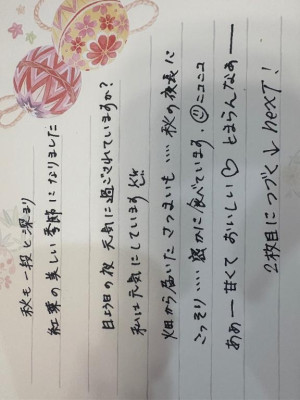 秋も一段と深まり
紅葉の美しい季節になりました
日よう日の夜 元気に過ごされていますか?
私は元気にしています
畑から届いたさつまいも…. 秋の夜長に
こっそり…. 密かに食べています。ニコニコ
あめー甘くて おいしい♡ とまらんなあー
2枚目につづく↓ next!